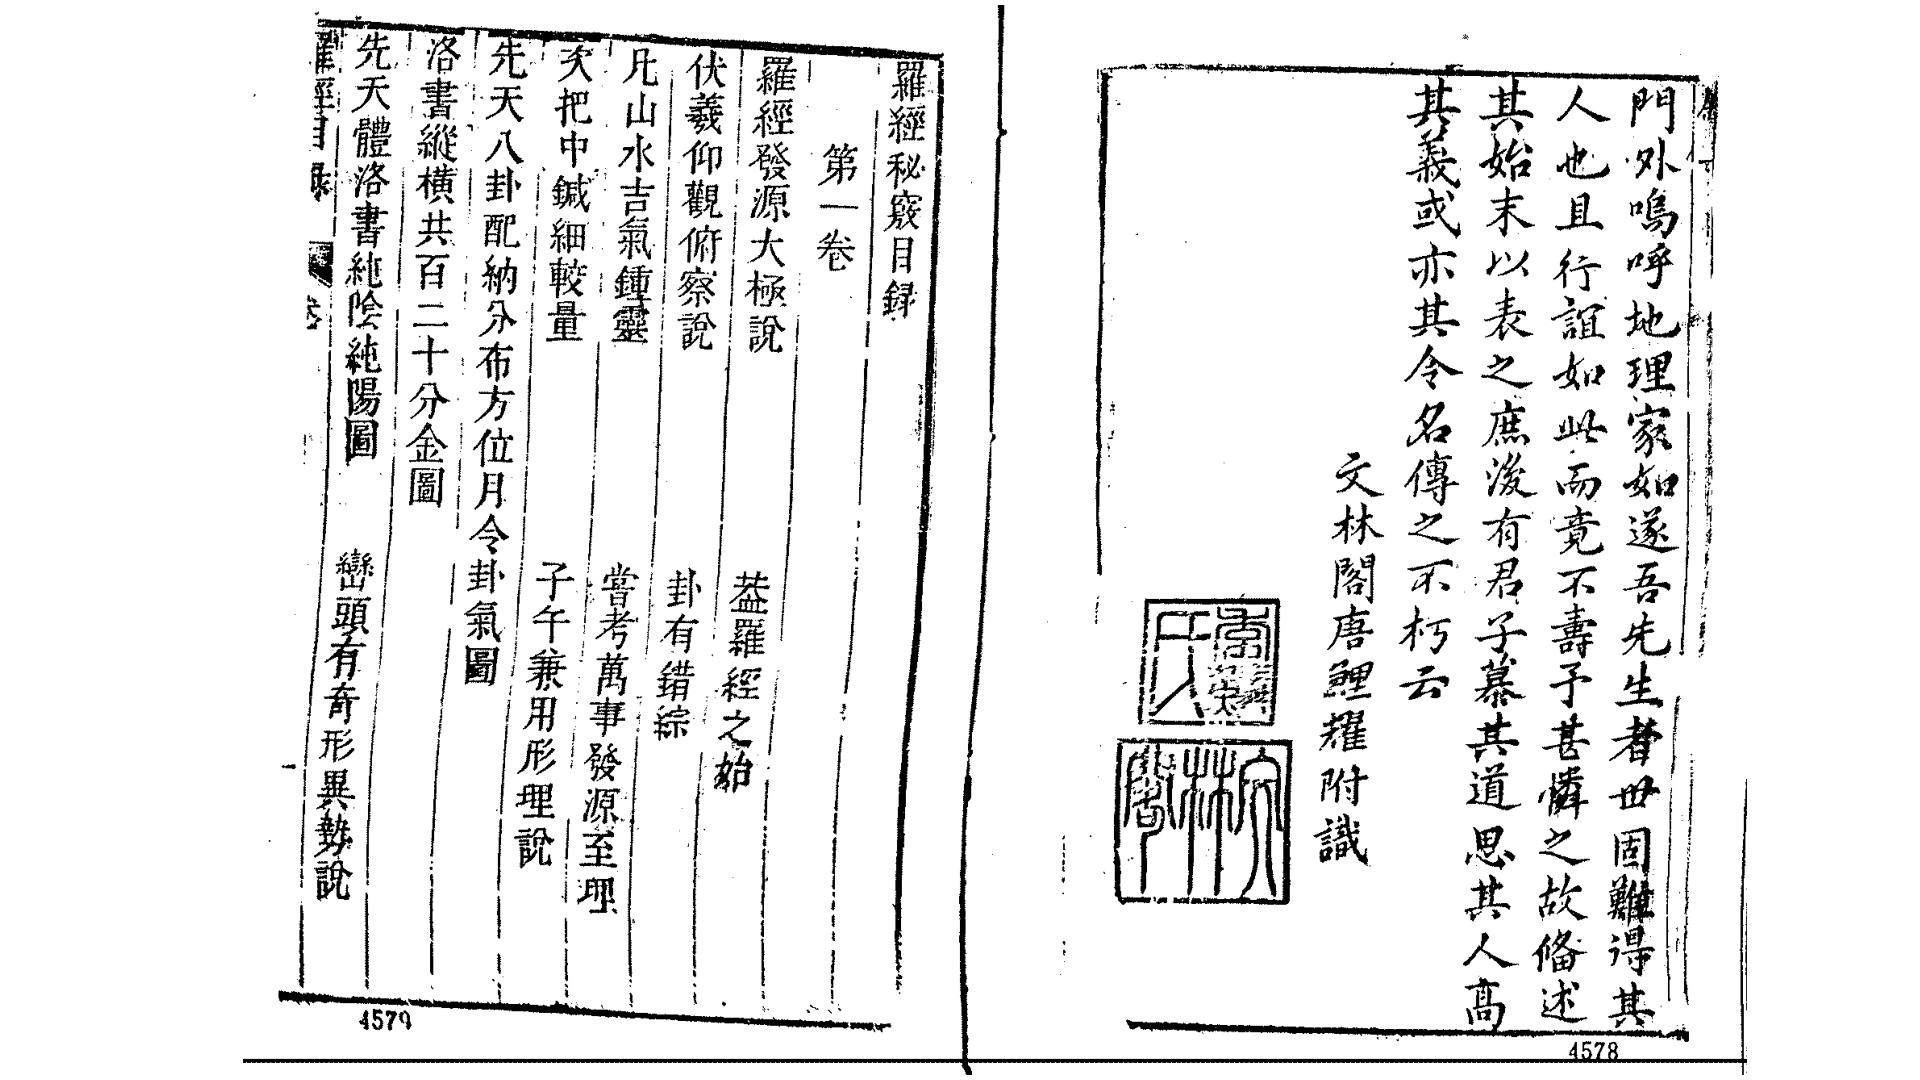 門外嗚呼地理家如遂吾先生者世固難得其
人也且行誼如此而竟不壽予甚憐之故俻述
其始末以表之庶後有君子慕其道思其人高
其義或亦其令名傳之不朽云
文林閣唐鯉耀附識
4578
羅經秘竅目録
第一卷
羅經發源大極說 葢羅經之始
伏羲仰觀俯察說 卦有錯綜
凡山水吉氣鍾靈 嘗考萬事發源至理
次把中鍼細較量 子午兼用形理說
先天八卦配納分布方位月令卦氣圖
洛書縱橫共百二十分金圖
先天體洛書純陰純陽圖 巒頭有奇形異勢說
羅經目録 卷
4579